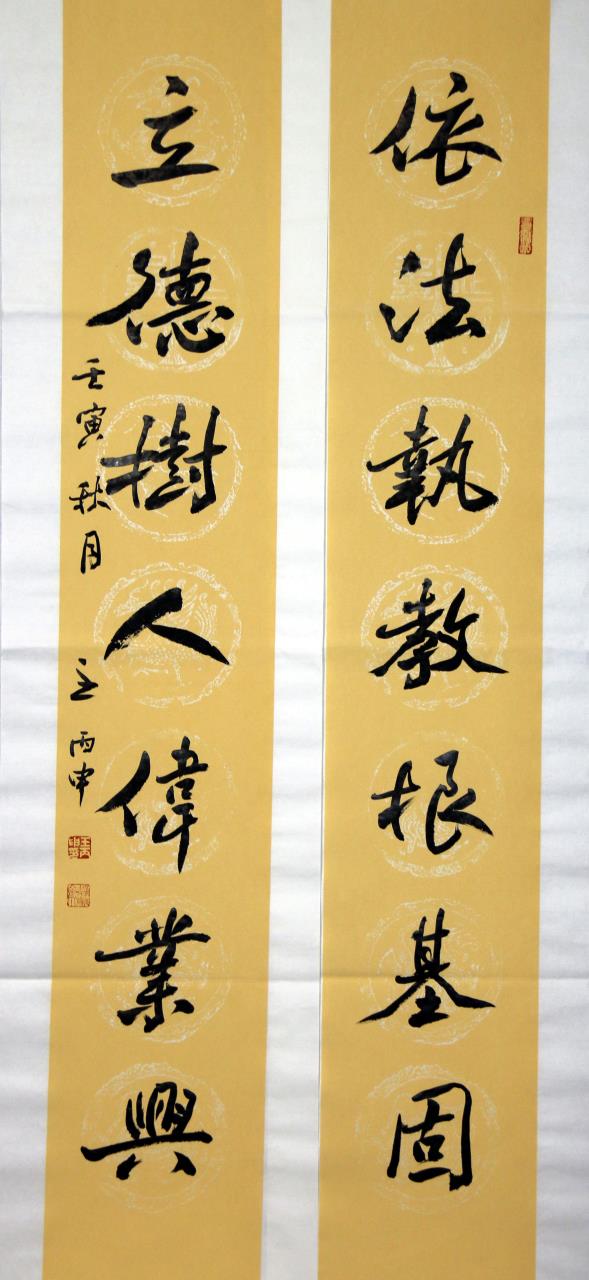 依法執教根基固
立德樹人偉業興
壬寅秋月
王丙申